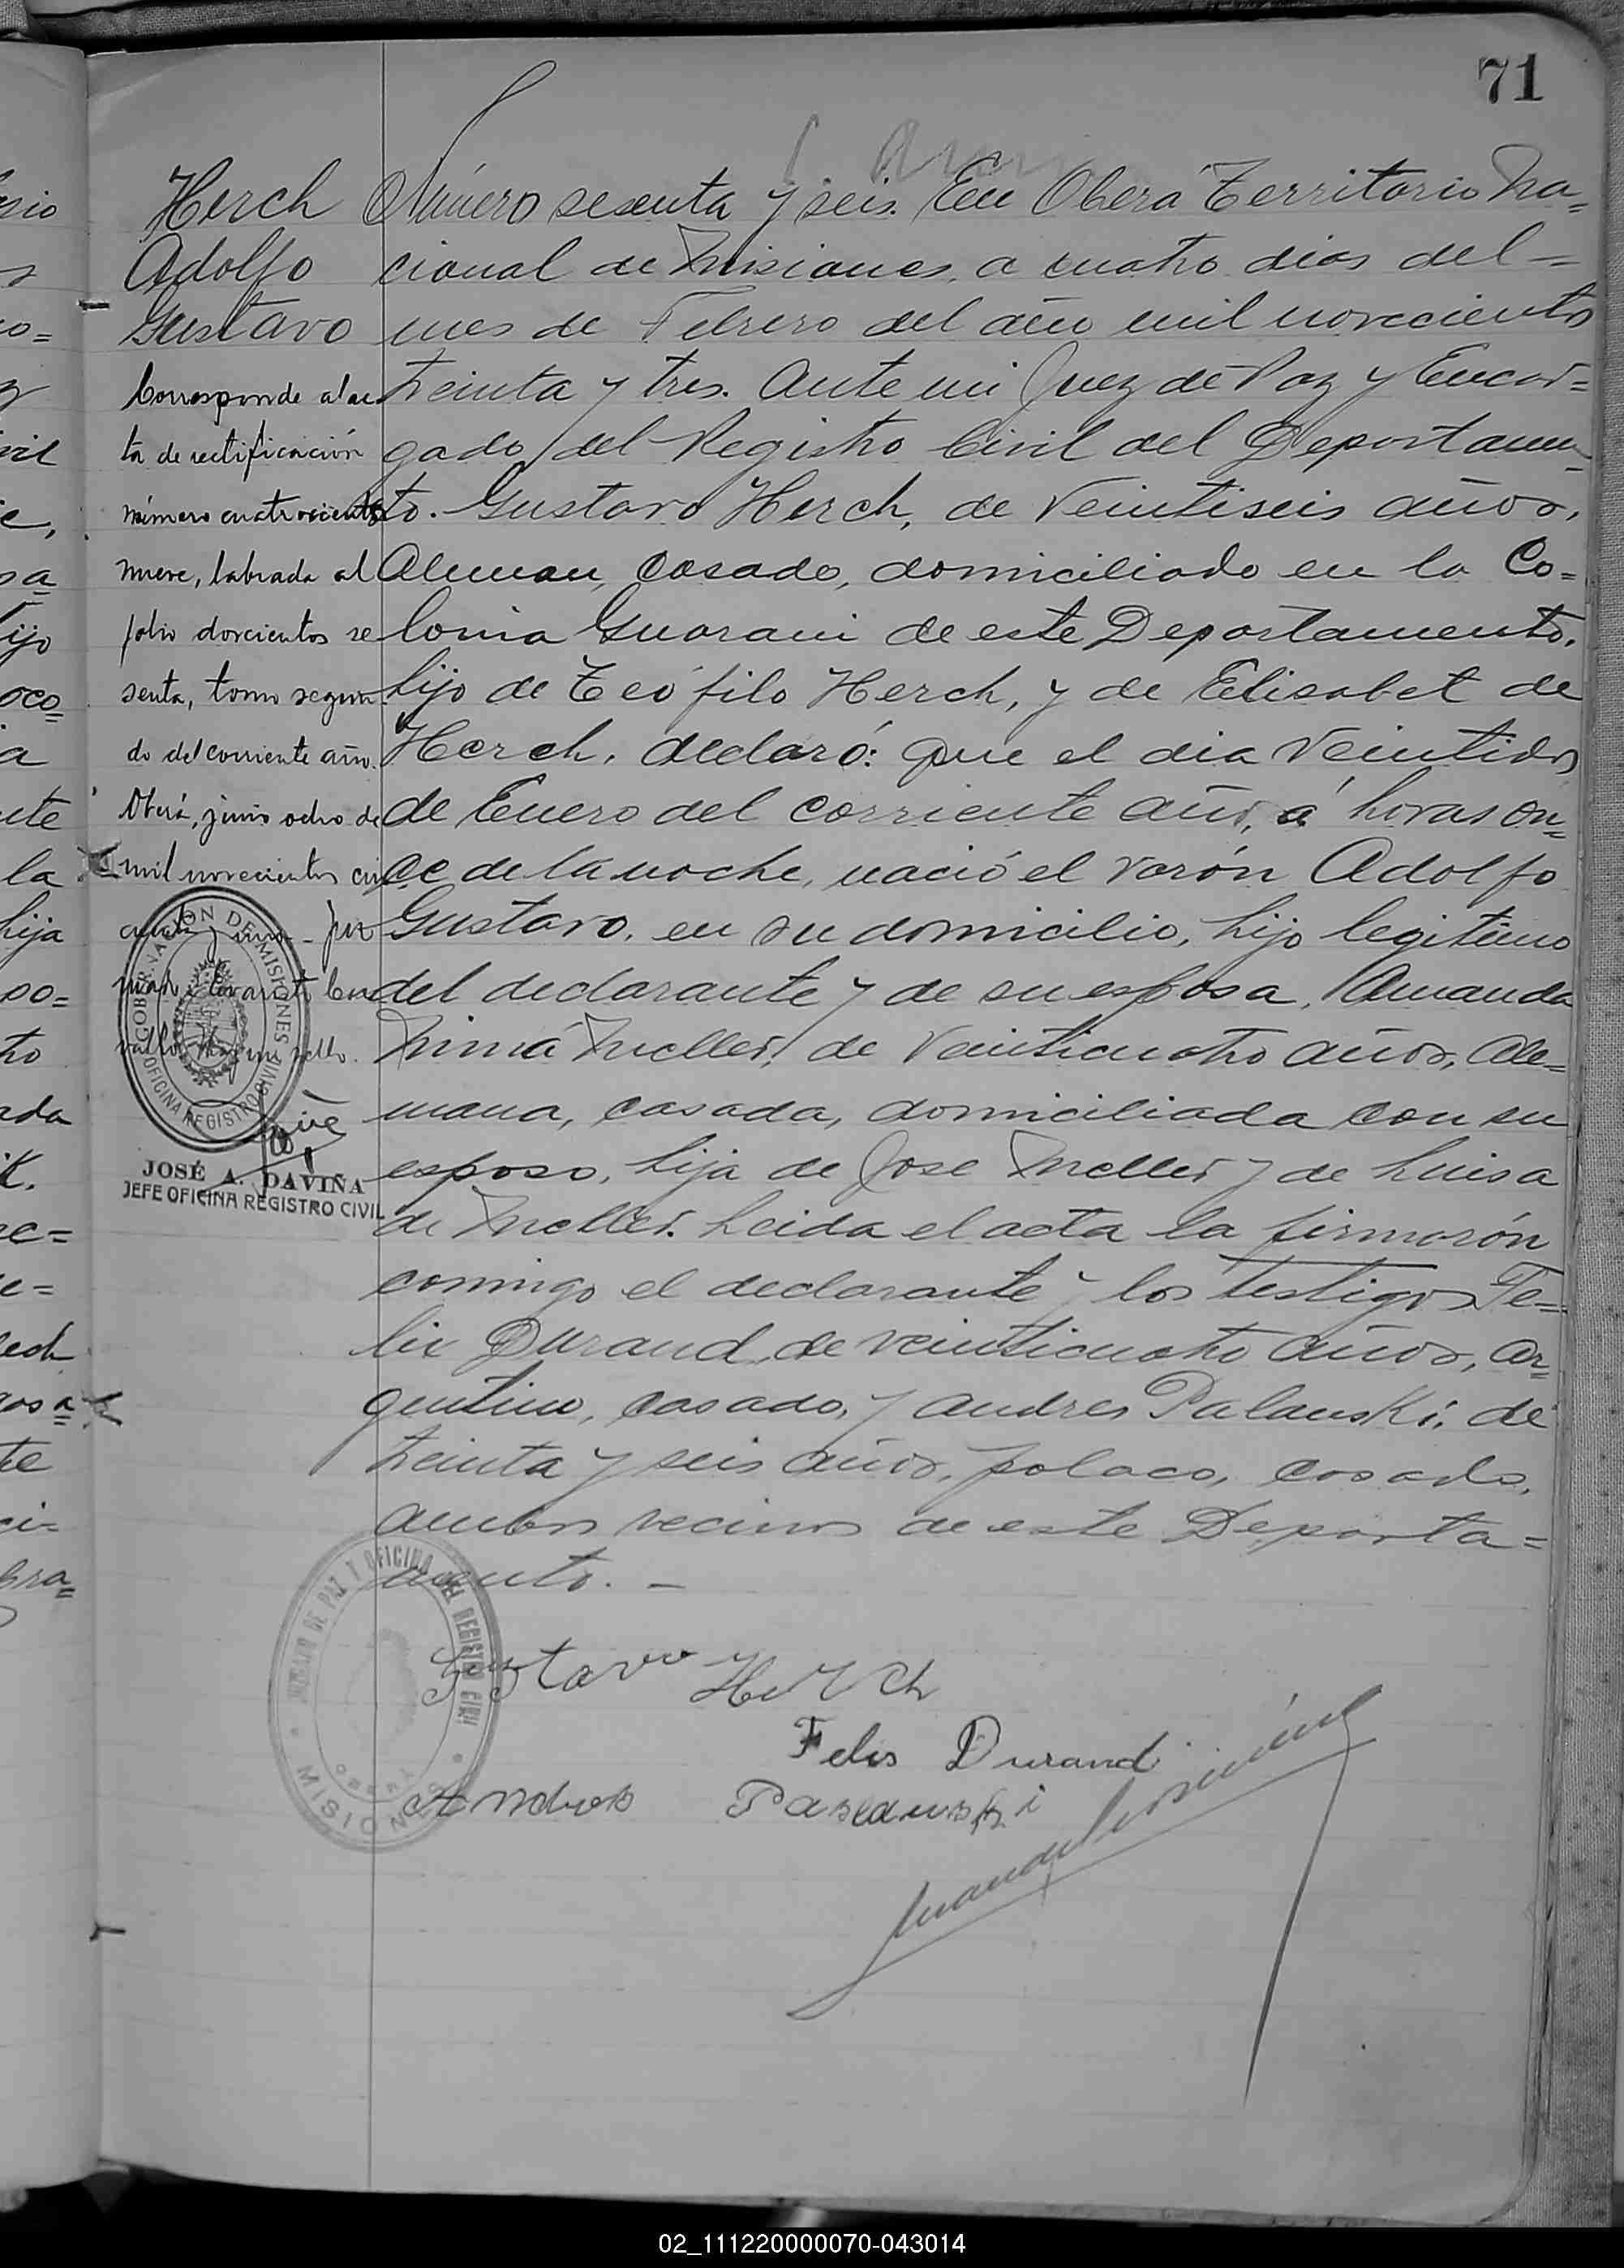 71
Herch
Adolfo
Gustavo
Corresponde al ac
ta de rectificación
número cuatrocientos
nueve, labrada al
folio doscientos se
senta, tomo segun-
do del corriente año.
Oberá, junio ocho de
mil novecientos cin
cuenta y uno.
sello.
GOBERNACION DE MISIONES
OFICINA REGISTRO CIVIL
JOSÉ A. DAVIÑA
JEFE OFICINA REGISTRO CIVIL
Número sesenta y seis. En Oberá Territorio Na=
cional de Misiones, a cuatro dias del =
mes de Febrero del año mil novecientos
treinta y tres. Ante mi Juez de Paz y Encar=
gado del Registro Civil del Departamen_
to. Gustavo Herch, de veintiseis años,
Aleman, casado, domiciliado en la Co=
lonia Guarani de este Departamento.
hijo de Teófilo Herch, y de Elisabet de
Herch, declaró: que el dia veintidos
de Enero del corriente año, á horas on=
ce de la noche, nació el varón Adolfo
Gustavo, en su domicilio, hijo legitimo
del declarante y de su esposa, Amanda
Miná Meller, de veinticuatro años, Ale=
mana, casada, domiciliada con su
esposo, hija de Jose Meller y de Luisa
de Meller. Leida el acta la firmarón
comigo el declarante y los testigos Fe=
lix Durand, de veinticuatro años, ar=
gentino, casado, y Andres Palauski. de
treinta y seis años, polaco, casado,
ambos vecinos de este Departa=
mento. _
JUZGADO DE PAZ Y OFICINA DEL REGISTRO CIVIL
MISIONES
Gustavo Herch
Felis Durand
Andres